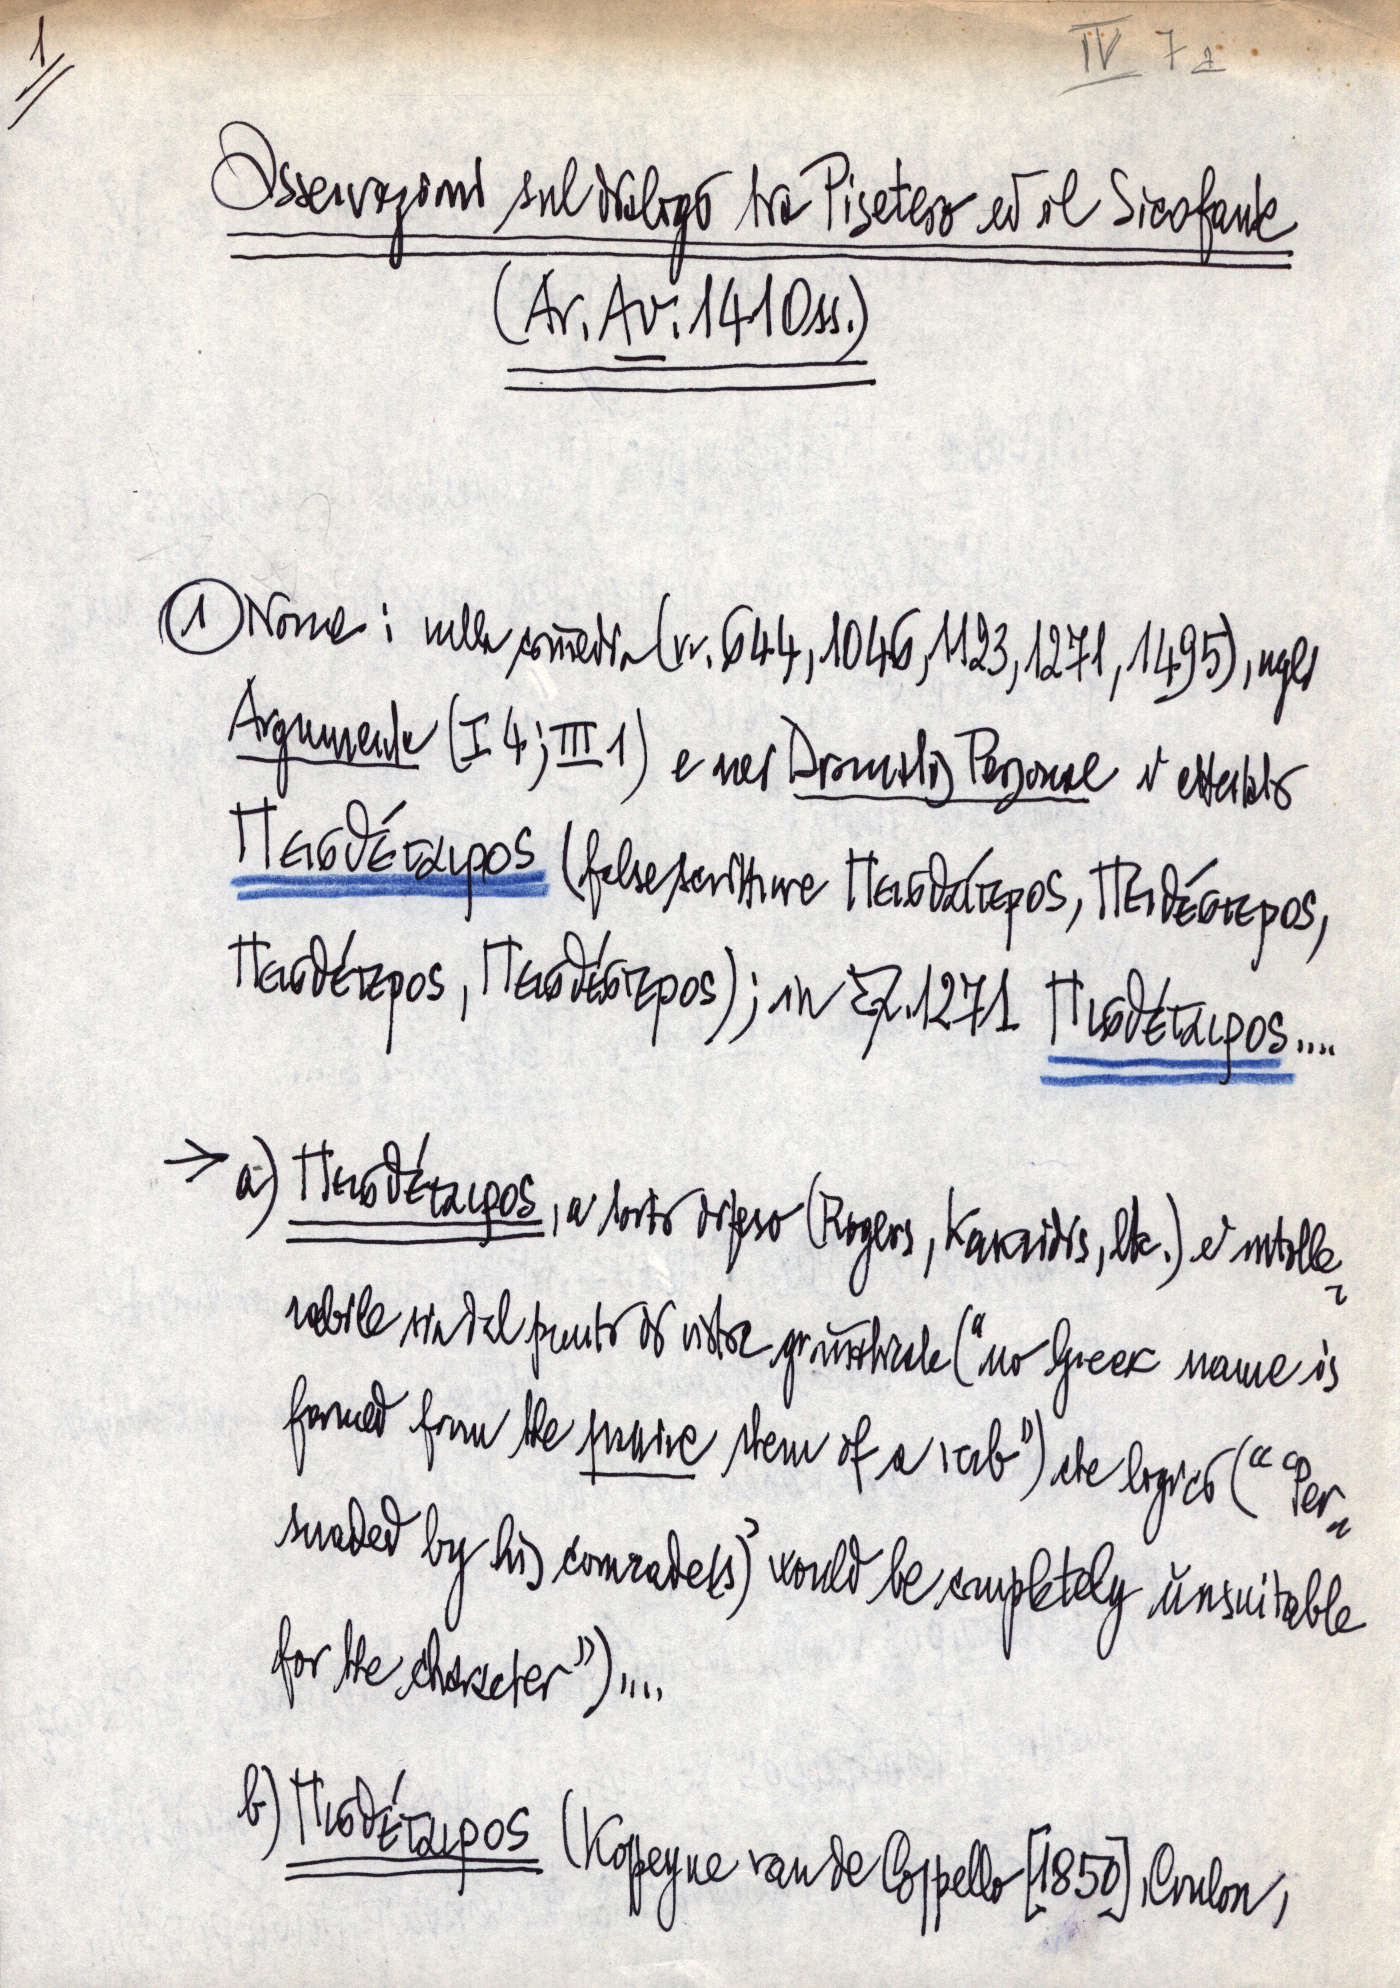 1
IV 7a
Osservazioni sul dialogo tra Pisetero ed il Sicofante
(Ar. Av. 1410ss.)
1 Nome: nella com̄edia (vv. 644, 1046, 1123, 1271, 1495), negli
Argumenta (I 4; III 1) e nei Dramatis Personae è attestato
Πεισθέταιρος (false scritture Πεισθαίτερος, Πειθέστερος,
Πεισθέτερος, Πεισθέστερος); in Σ 1271 Πισθέταιρος....
→ a) Πεισθέταιρος, a torto difeso (Rogers, Kakridis, etc.) è intolle
rabile sia dal punto di vista gram̄aticale ("no Greek name is
formed from the passive stem of a verb") che logico ("'Per
suaded by his comrade(s)' would be completely unsuitable
for the character")....
b) Πισθέταιρος (Koppeyne van de Coppello [1850], Coulon,